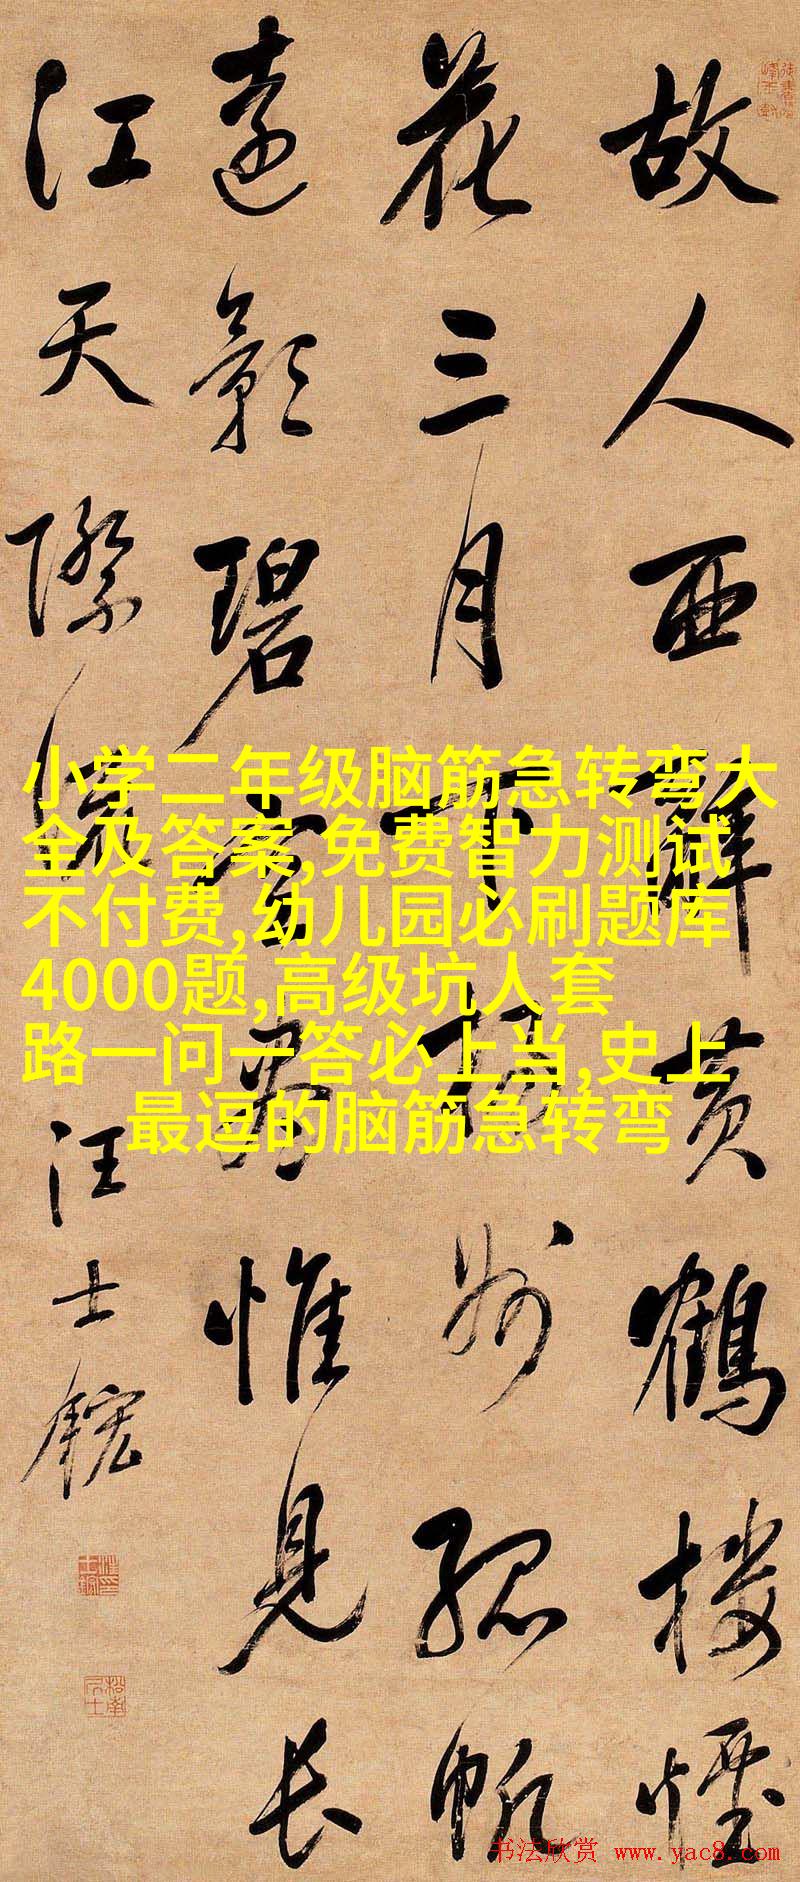 故人西辭黄鶴楼煙
花三月下揚州孤帆
遠影碧空盡惟見长
江天際流
汪士鋐
小学二年级脑筋急转弯大
全及答案,免费智力测试
不付费,幼儿园必刷题库
4000题,高级坑人套
路一问一答必上当,史上
最逗的脑筋急转弯
书法欣赏 www.yac8.com